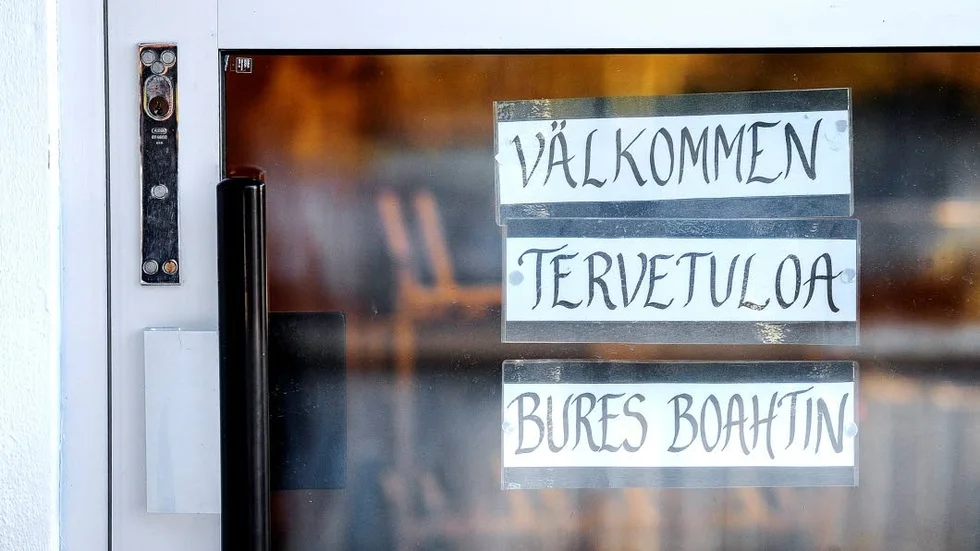 VÄLKOMMEN
TERVETULOA
BURES BOAHTIN